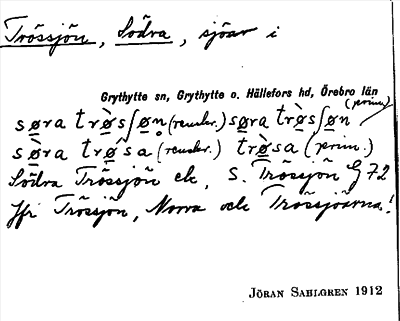 Trössjön, Södra, sjöar i
Grythytte sn, Grythytte o. Hällefors hd, Örebro län
(prim.)
søra trøsʃøn (renskr.) søra trøsʃøn
søra trøsa (renskr.) trøsa (prim.)
Södra Trössjön ek, S. Trössjön G 72
Jfr Trössjön, Norra och Trössjöarna!
JÖRAN SAHLGREN 1912